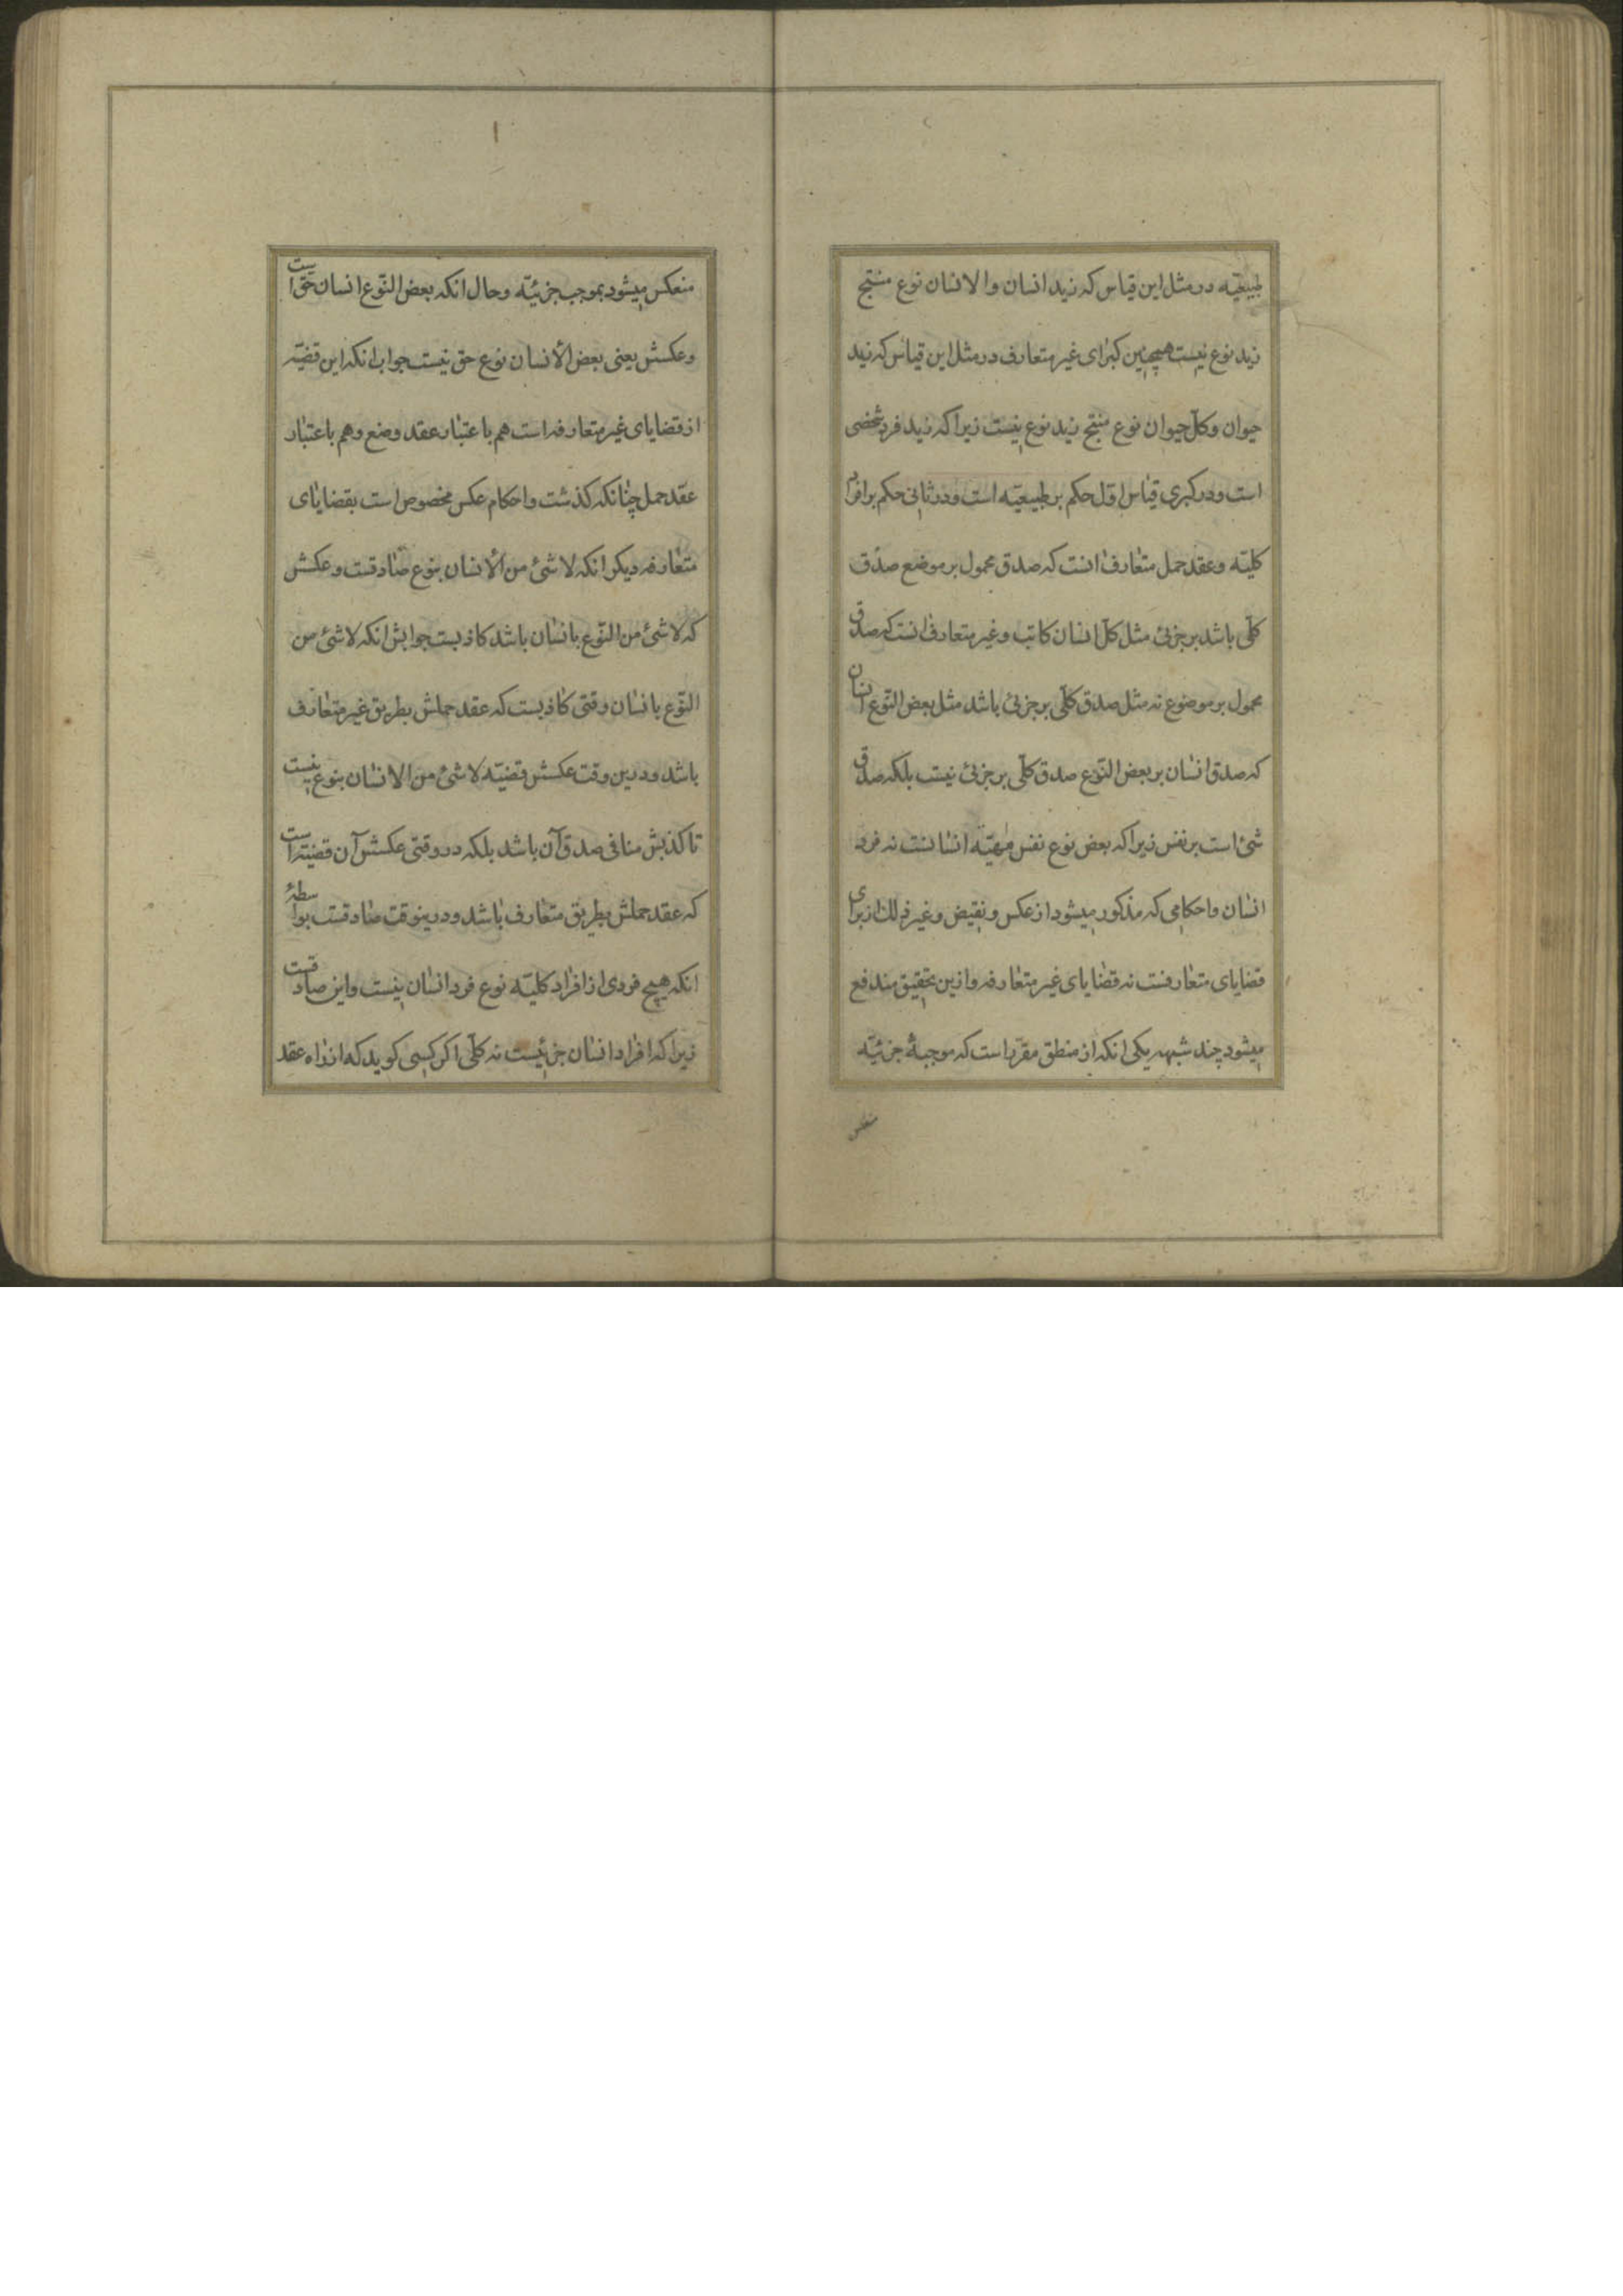 طبیعیّه در مثل این قیاس که زید انسان والانسان نوع منتج
زید نوع نیست همچنین کبرای غیر متعارف در مثل این قیاس که زید
حیوان و کلّ حیوان نوع منتج زید نوع نیست زیرا که زید فرد شخصی
است و در کبری قیاس اول حکم بر طبیعیّه است و در ثانی حکم بر افراد
کلیّه و عقد حمل متعارف انست که صدق محمول بر موضع صدق
کلّی باشد بر جزئی مثل کلّ انسان کاتب و غیر متعارف انست که صدق
محمول بر موضوع نه مثل صدق کلّی بر جزئی باشد مثل بعض النّوع انسان
که صدق انسان بر بعض النّوع صدق کلّی بر جزئی نیست بلکه صدق
شئ است بر نفس زیرا که بعض نوع نفس مهیّه انسانست نه فرد
انسان و احکامی که مذکور میشود از عکس و نقیض و غیر ذلك از برای
قضایای متعارفست نه قضایای غیر متعارفه و ازین تحقیق مندفع
میشود چند شبهه یکی انکه از منطق مقرّر است که موجبهٔ جزئیّه
منعکس
منعکس میشود بموجب جزئیّه و حال انکه بعض النّوع انسان حقّ است
و عکسش یعنی بعض الأنسان نوع حق نیست جواب انکه این قضیّه
از قضایای غیر متعارفه است هم باعتبار عقد وضع و هم باعتبار
عقد حمل چنانکه کذشت و احکام عکس مخصوص است بقضایای
متعارفه دیکر انکه لا شئ من الأنسان بنوع صادقست و عکسش
که لا شئ من النّوع بانسان باشد کاذبست جوابش انکه لا شئ من
النّوع بانسان وقتی کاذبست که عقد حملش بطریق غیر متعارف
باشد و درین وقت عکسش قضیّه لا شئ من الانسان بنوع نیست
تا کذبش منافی صدق آن باشد بلکه در وقتی عکسش آن قضیّه است
که عقد حملش بطریق متعارف باشد و درینوقت صادقست بواسطهٔ
انکه هیچ فردی از افراد کلیّه نوع فرد انسان نیست و این صادقست
زیرا که افراد انسان جزئیست نه کلّی اکر کسی کوید که از راه عقد